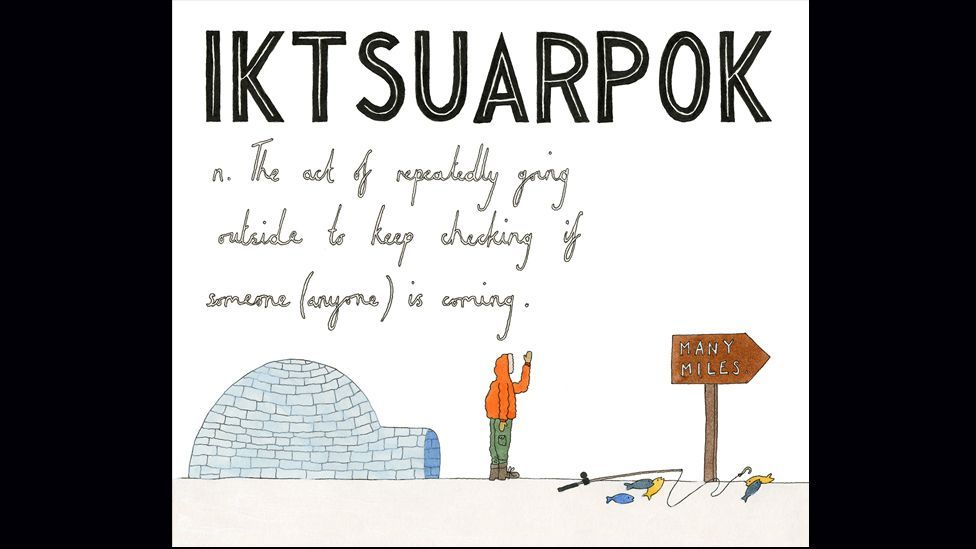 IKTSUARPOK
n. The act of repeatedly going
outside to keep checking if
someone (anyone) is coming.
MANY
MILES.